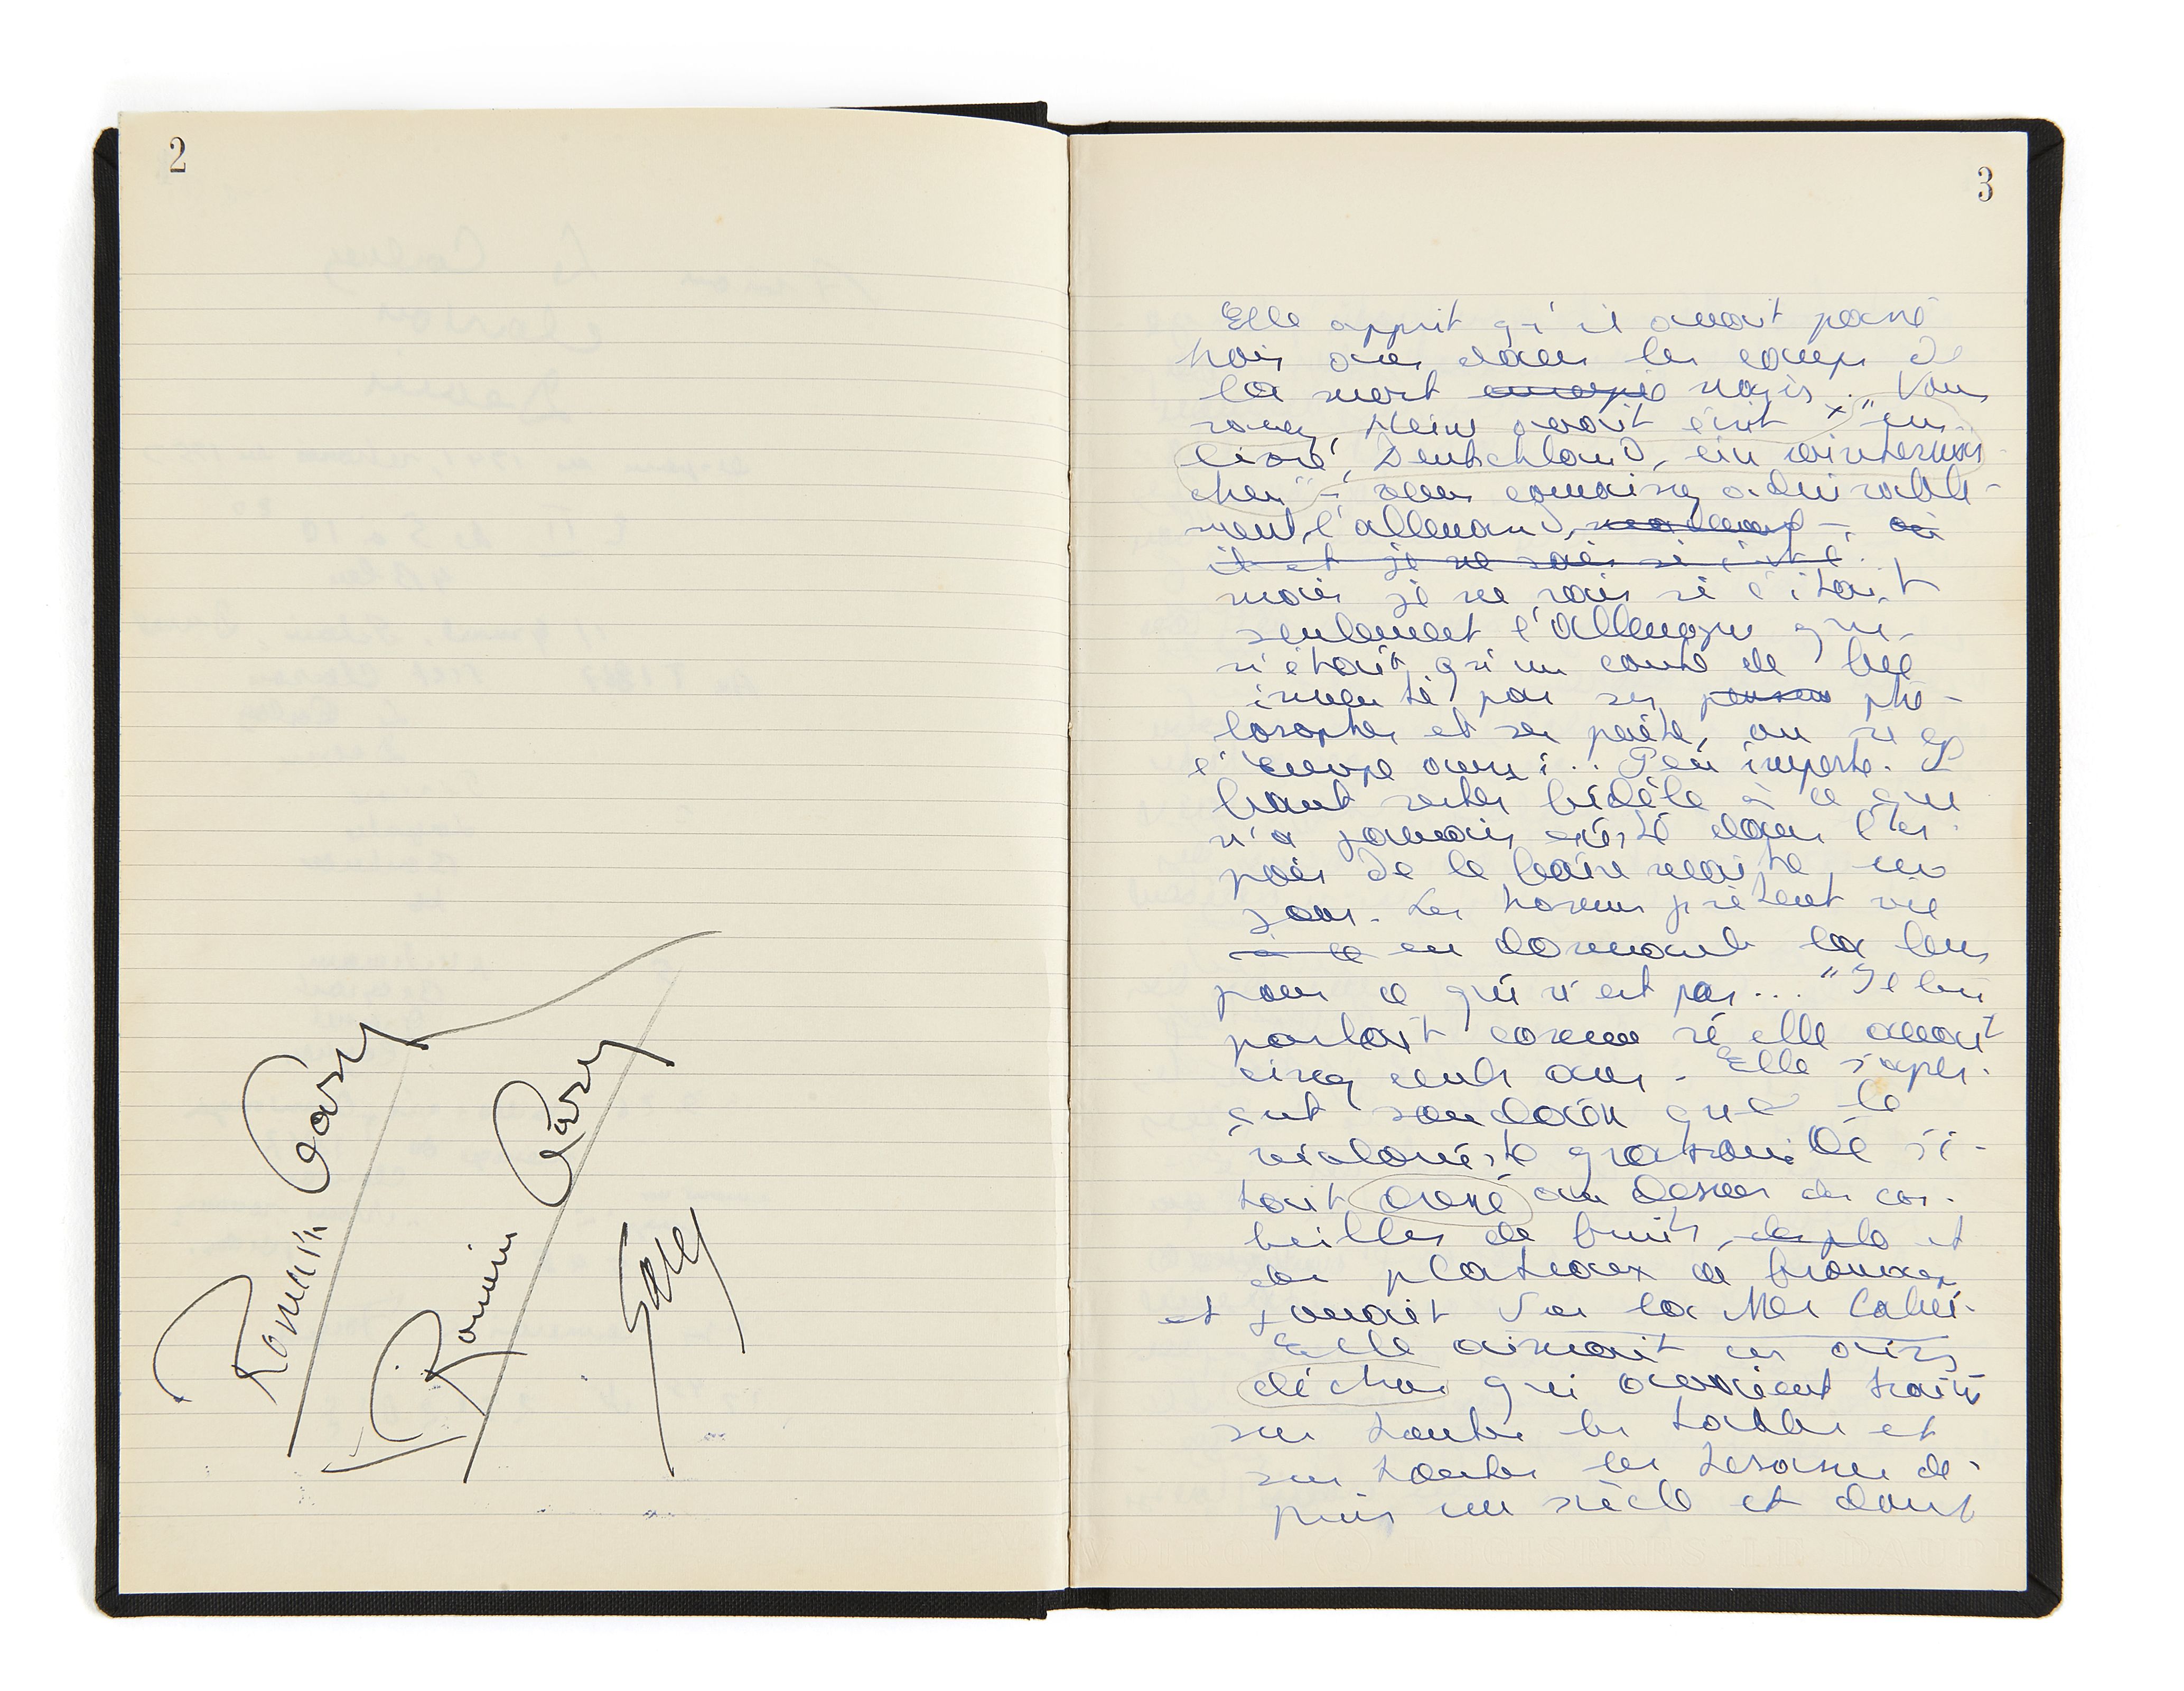 2
Romain Gary
Romain Gary
Gary
3
Elle apprit qu'il avait passé
trois ans dans les camps de
la mort nazis... Vous
savez, Heine avait écrit "un
livre", Deutschland, ein wintermär
chen" – vous connaissez admirable-
ment l'allemand,
et je ne sais si c'est
mais je ne sais si c'était
seulement l'Allemagne qui
n'était qu'un conte de fée
inventé par ses phi-
losophes et ses poètes, ou si
l'Europe aussi... Peu importe. Il
faut rester fidèle à ce qui
n'a jamais existé dans l'es-
poir de le faire naître, un
jour. Les hommes prêtent vie
à ce en donnant la leur
pour ce qui n'est pas... " Il lui
parlait comme si elle avait
cinq cents ans. Elle s'aper-
çut soudain que le
violoniste gratouille s'é-
tait au dessus des cor-
beilles de fruits, et
des plateaux de fromages
et jouait Sur la Mer Calmé-
Elle aimait ces airs
déchus qui avaient traîné
sur toutes les tables et
sur toutes les terrasses de-
puis un siècle et dont